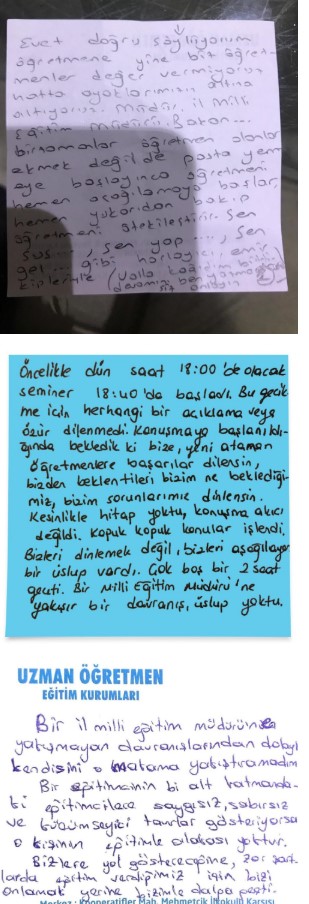 Evet doğru söylüyorum
öğretmene yine biz öğret-
menler değer vermiyoruz
hatta ayaklarımızın altına
alıyoruz. Müdür, il Milli
Eğitim Müdürü, Bakan...
bir zamanlar öğretmen olanlar
ekmek değil de pasta yem
eye başlayınca öğretmeni
hemen aşağılamaya başlar,
hemen yukarıdan bakıp
öğretmeni ötekileştirir. Sen
sus..., sen yap ..., sen
gel ... gibi horlayıcı, emir
kipleriyle (Valla kağıdım bitti
devamını ben yazmadan
siz anlayın)
Öncelikle dün saat 18:00'de olacak
seminer 18:40'da başladı. Bu gecik
me için herhangi bir açıklama veya
özür dilenmedi. Konuşmaya başlanıldı-
ğında bekledik ki bize, yeni ataman
öğretmenlere başarılar dilensin,
bizden beklentileri bizim ne beklediği-
miz, bizim sorunlarımız dinlensin.
Kesinlikle hitap yoktu, konuşma akıcı
değildi. Kopuk kopuk konular işlendi.
Bizleri dinlemek değil, bizleri aşağılayan
bir üslup vardı. Çok boş bir 2 saat
geçti. Bir Milli Eğitim Müdürü'ne
yakışır bir davranış, üslup yoktu.
UZMAN ÖĞRETMEN
EĞİTİM KURUMLARI
Bir il milli eğitim müdürüne
yakışmayan davranışlarından dolayı
kendisini o makama yakıştıramadım
Bir eğitimcinin bi alt katmanda-
ki eğitimcilere saygısız, sabırsız
ve küçümseyici tavırlar gösteriyorsa
o kişinin eğitimle alakası yoktur.
Bizlere yol göstereceğine, zor şart-
larda eğitim verdiğimiz için bizi
anlamak yerine bizimle dalga geçti.
Merkez: Kooperatifler Mah. Mehmetçik İlkokulu Karşısı